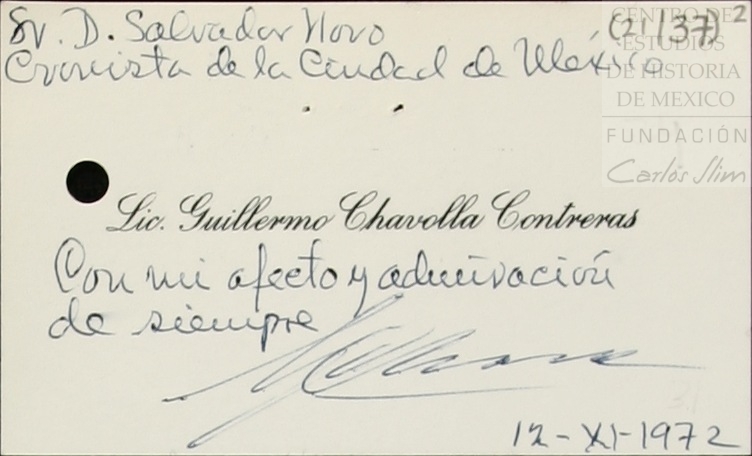 Sr. D. Salvador Novo
Cronista de la Ciudad de México
(21 137) 2
CENTRO DE
ESTUDIOS
DE HISTORIA
DE MEXICO
FUNDACIÓN
Carlos Slim
Lic. Guillermo Chavolla Contreras
Con mi afecto y admiración
de siempre
12-XI-1972